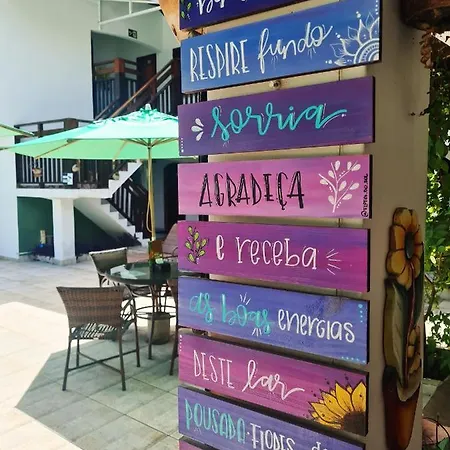 RESPIRE fundo
sorria
AGRADEÇA
e receba
as boas energias
DESTE lar
POUSADA FLORES